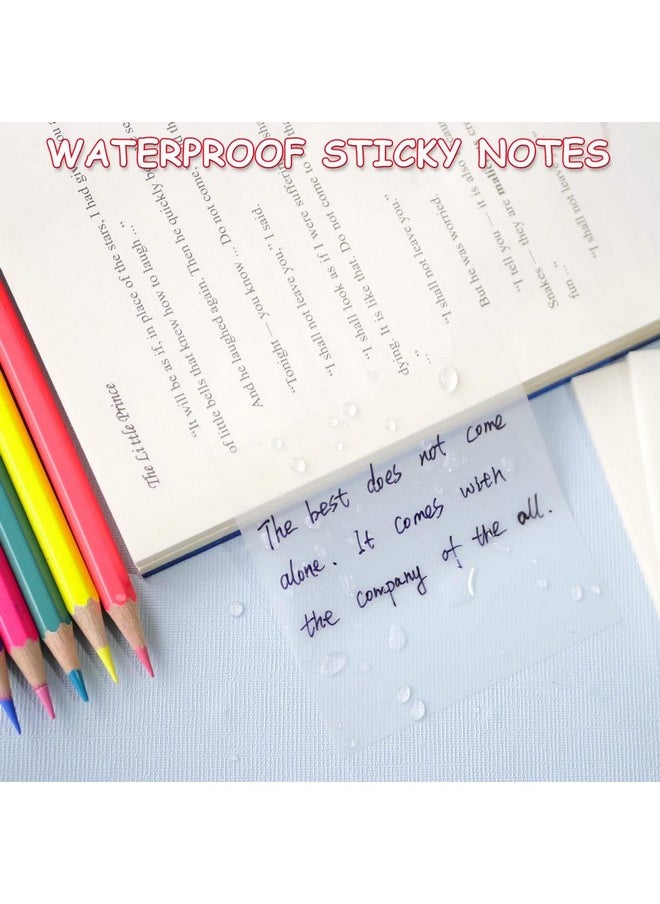 WATERPROOF STICKY NOTES
The Little Prince
"It will be as if, in place of the stars, I had
of little bells that knew how to laugh ..."
And he laughed again. Then he quickly
"Tonight — you know ... Do not come."
"I shall not leave you," I said.
"I shall look as if I were
dying. It is like that. Do not come to
..."
"I shall not leave you."
But he was worried.
"I tell you — it is also
Snakes — they are
fun ..."
"I shall not leave
The best does not come
alone. It comes with
the company of the all.